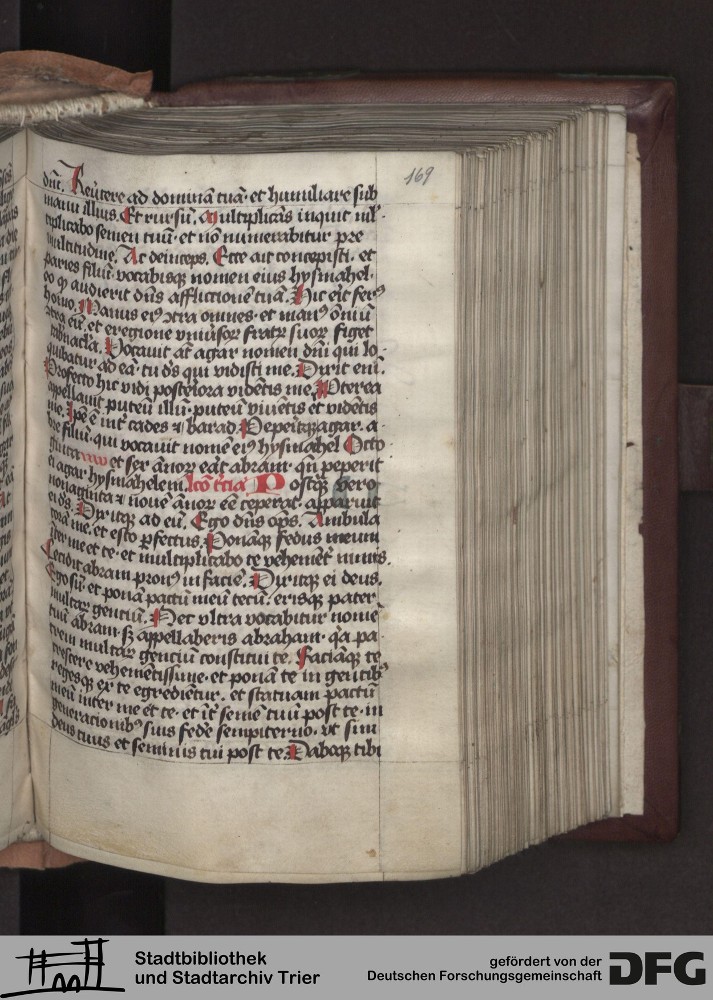 169
dn̄i. Reu̾tere ad dominā tuā· et humiliare sub
manu illius. Et rursū. Multiplicās inquit ml̾
tiplicabo semen tuū· et nō numerabitur pre
multitudine. Ac deinceps. Ecce ait concepisti· et
paries filiū· vocabisqꝫ nomen eius hysmahel·
eo qꝫ audierit dn̄s afflictionē tuā. Hic erit ferꝰ
homo. Manus eiꝰ ↄtra omnes· et manꝰ oīm̄
ↄtra eū. et eregione vniūsoꝝ fratrū suoꝝ figet
tab̾nacl̄a. Vocauit at̄ agar nomen dn̄i qui lo-
quibatur ad eā· tu ds̄ qui vidisti me. Dixit enī.
Profecto hic vidi posteriora videntis me. Pterea
appellauit puteū illū· puteū viuētis et videntis
me. Ip̄e ē int̾ cades ⁊ barad. Peperitqꝫ agar· a-
bre filiū· qui vocauit nomē eiꝰ hysmahel Octo
ginta et sex ānoꝝ erat abram· qn̄ peperit
ei agar hysmahelem. lc̄o tercia Postqꝫ vero
nonaginta ⁊ nouē ānoꝝ eē ceperat· apparuit
ei ds̄. Dixitqꝫ ad eū. Ego dn̄s ops̄. Ambula
corā me· et esto ꝑfectus. Ponāqꝫ fedus meum
int̾ me et te· et multiplicabo te vehemēt̾ nimis.
Cecidit abram pronꝰ in faciē. Dixitqꝫ ei deus.
Ego sū· et ponā pactū meū tecū. erisqꝫ pater
multaꝝ gentiū. Nec vltra vocabitur nomē
tuū abram· sꝫ appellaberis abraham· qꝛ pa-
trem multaꝝ gentiū constitui te. Faciāqꝫ te
crescere vehementissime· et ponā te in gentibꝰ
regesqꝫ ex te egrediētur. et statuam pactū
meū inter me et te· et int̾ semē tuū post te· in
generacionibꝰ suis fede sempiterno. vt sim
deus tuus et seminis tui post te. Daboqꝫ tibi
Stadtbibliothek
und Stadtarchiv Trier
gefördert von der
Deutschen Forschungsgemeinschaft
DFG